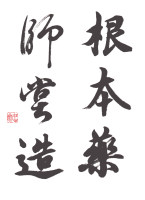 根本薬
師堂造